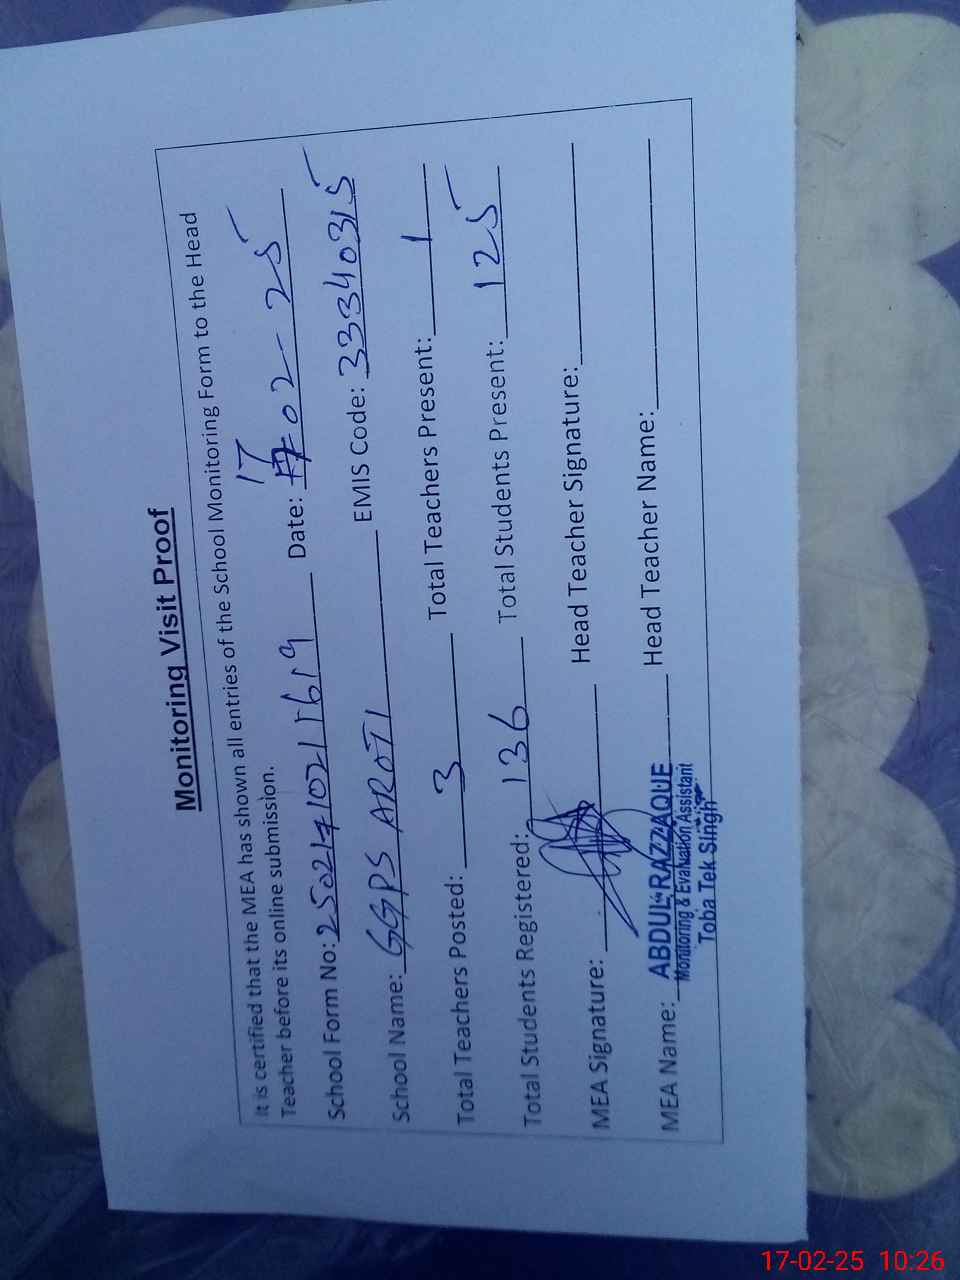 Monitoring Visit Proof
It is certified that the MEA has shown all entries of the School Monitoring Form to the Head
Teacher before its online submission.
17
School Form No: 250217102115619 Date: 17-02-25
School Name: GGPS AROTI EMIS Code: 33340315
Total Teachers Posted: 3 Total Teachers Present: 1
Total Students Registered: 136 Total Students Present: 125
MEA Signature: Head Teacher Signature:
MEA Name: ABDUL RAZZAQUE Head Teacher Name:
Monitoring & Evaluation Assistant
Toba Tek Singh
17-02-25 10:26